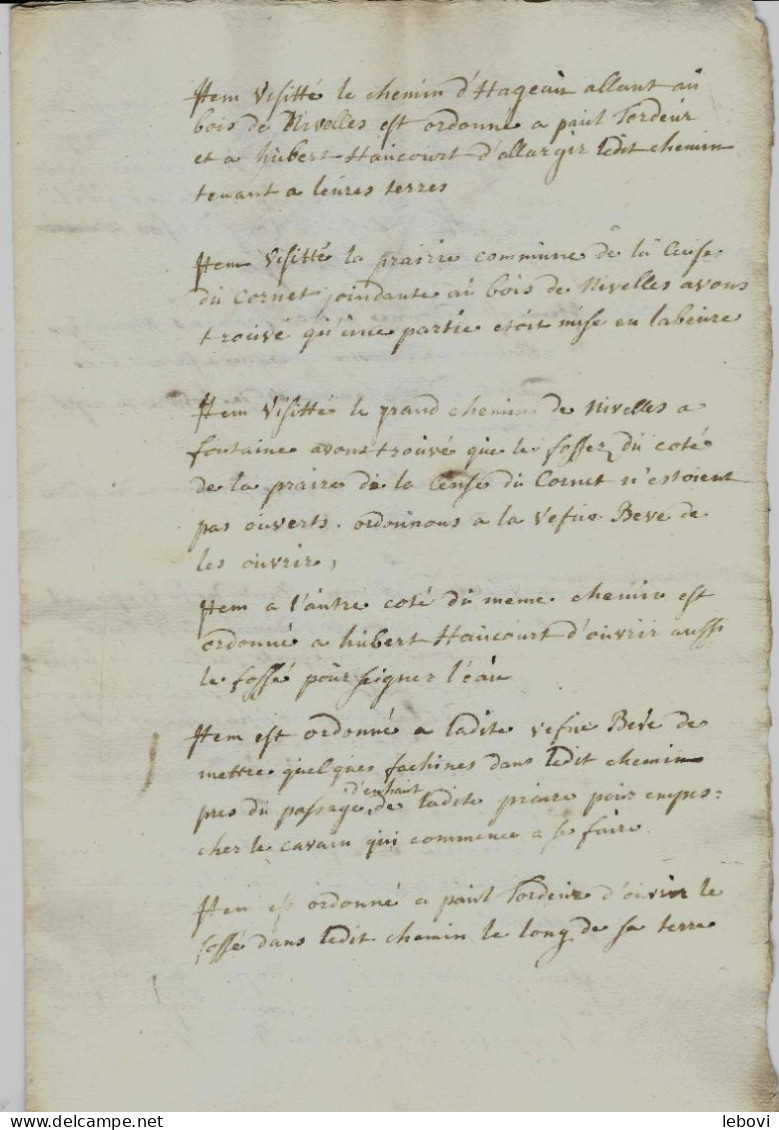 Item visitté le chemin d'Hageau allant au
bois de Nivelles est ordonné a paul Tordeur
et a hubert Haucourt d'allargir ledit chemin
tenant a leures terres
Item visitté la prairie commune de la Cense
du Cornet joindante au bois de Nivelles avons
trouvé qu'une partie etoit mise en labeure
Item visitté le grand chemin de Nivelles a
fontaine avons trouvé que le fossez du coté
de la praire de la Cense du Cornet n'estoient
pas ouverts. ordonnons a la vefue Beve de
les ouvrir,
Item a l'autre coté du meme chemin est
ordonné a hubert Haucourt d'ouvrir aussi
le fossé pour seigner l'eau
Item est ordonné a ladite vefue Beve de
mettre quelques fachines dans ledit chemin
pres du passage d'enhaut de ladite priare pour empes:
cher le cavain qui commence a se faire
Item est ordonné a paul Tordeur d'ouvrir le
fossé dans ledit chemin le long de sa terre
Delcampe.net
lebovi